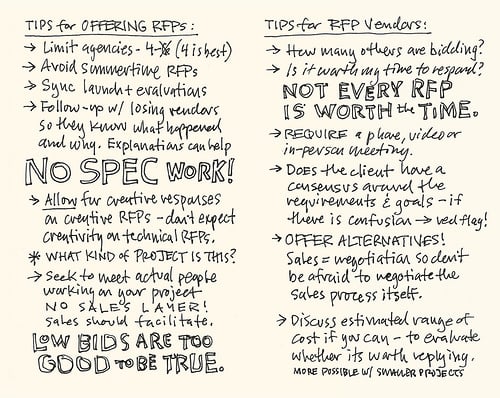 TIPS for OFFERING RFPs:
→ Limit agencies - 4-6 (4 is best)
→ Avoid summertime RFPs
→ Sync launch + evaluations
→ Follow-up w/ losing vendors
so they know what happened
and why. Explanations can help
NO SPEC WORK!
→ Allow for creative responses
on creative RFPs - don't expect
creativity on technical RFPs.
* WHAT KIND OF PROJECT IS THIS?
→ Seek to meet actual people
working on your project
NO SALES LAYER!
Sales should facilitate.
LOW BIDS ARE TOO
GOOD TO BE TRUE.
TIPS for RFP Vendors:
→ How many others are bidding?
→ Is it worth my time to respond?
NOT EVERY RFP
IS WORTH the TIME.
→ REQUIRE a phone, video or
in-person meeting.
→ Does the client have a
consensus around the
requirements & goals - if
there is confusion → red flag!
→ OFFER ALTERNATIVES!
Sales = negotiation so don't
be afraid to negotiate the
sales process itself.
→ Discuss estimated range of
cost if you can - to evaluate
whether its worth replying.
MORE POSSIBLE W/ SMALLER PROJECTS